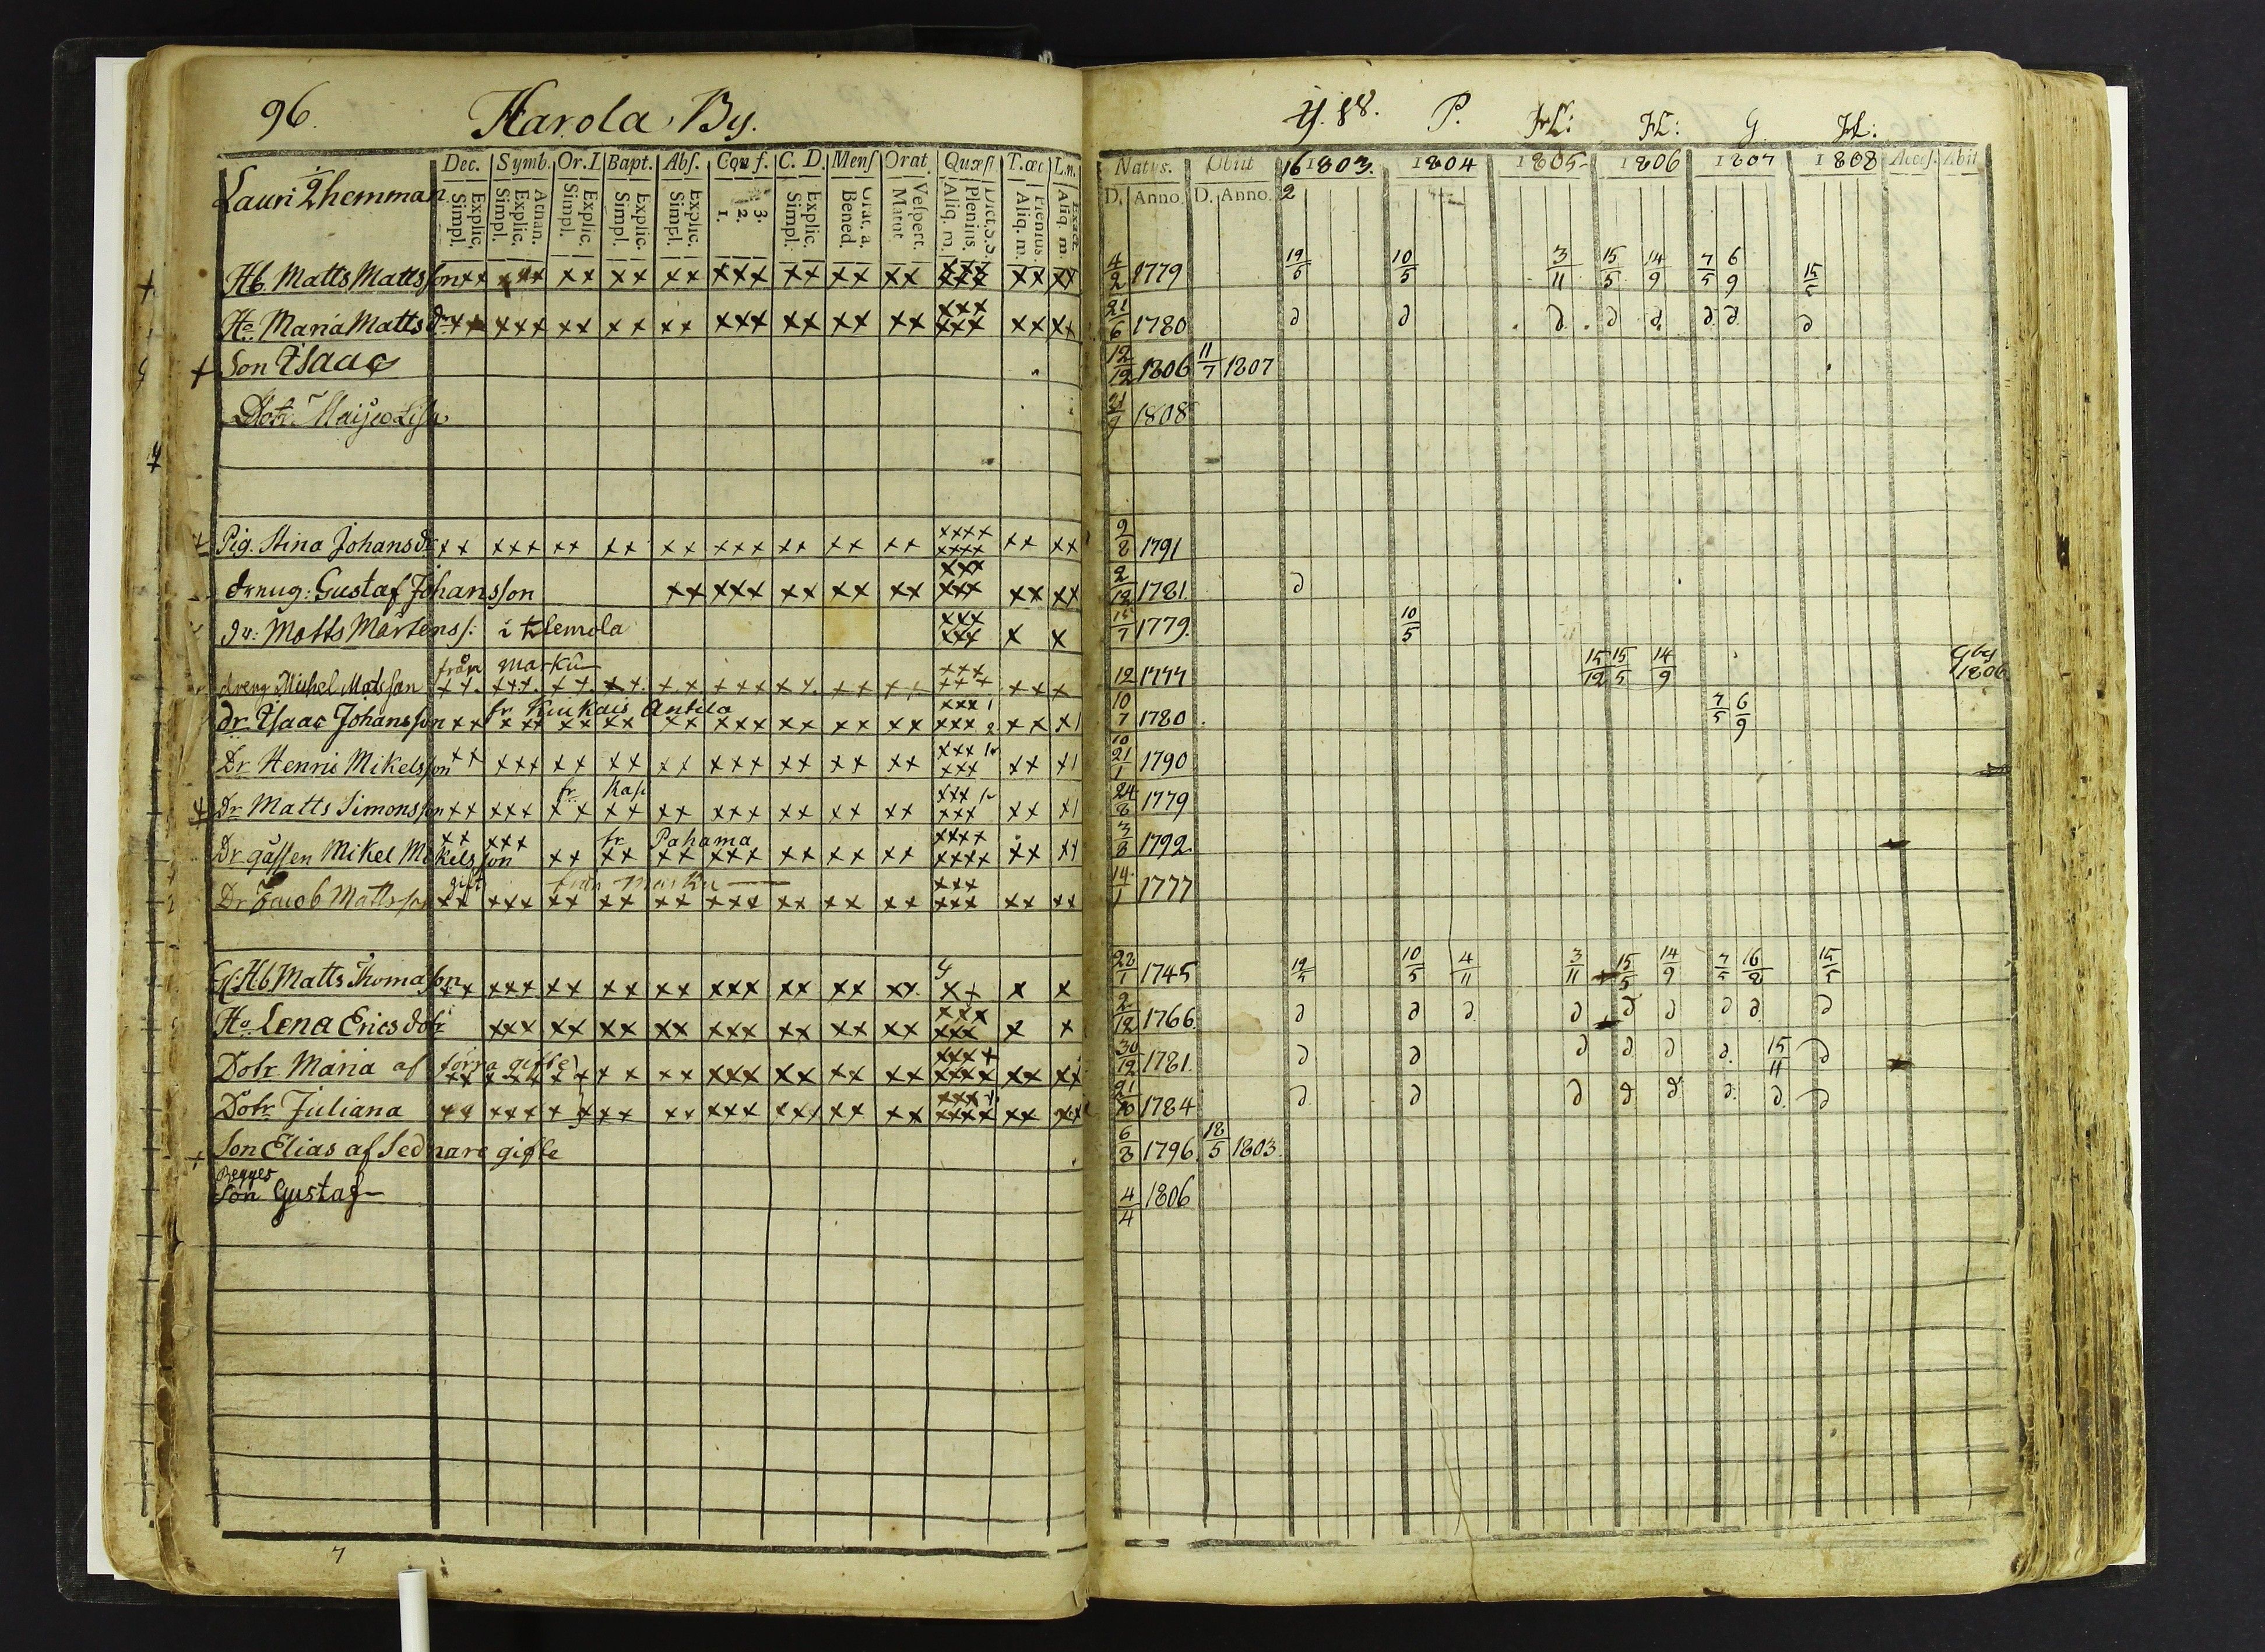 96. Harola By.
Y. 88. P. FrL: FL: G. FrL:
Lauri 2 hemman
Dec. Symb. Or. I Bapt. Abs. Conf. C. D. Mens Orat. Quæst. T. œc L. n.
Explic. Simpl. Athan. Explic. Simpl. Explic. Simpl. Explic. Simpl. Explic. Simpl. 3. 2. 1. Explic. Simpl. Grat. a. Bened. Vespert. Matut. Dict. S. S. Plenius. Aliq. m. Plenius. Aliq. m. Exacte. Aliq. m.
Natus. Obiit 16 1803. 1804 1805 1806 1807 1808 Access. Abit
D. Anno. D. Anno. 2
Hb. Matts Mattsson 4/2 1779 19/5 10/5 3/11 15/5 14/9 7/5 6/9 15/5
Ha Maria Matts dr 21/6 1780 d d d d d d d d
Son Isaac 12/12 1806 11/7 1807
Dotr. Maija Lisa 21/9 1808
Pig. Stina Johans dr 9/8 1791
dreng: Gustaf Johansson 2/12 1781 d
Matts Mårtens s: i 15/7 1779. 10/5
från Marku
dreng Michel Matsson 12 1777 15/12 15/5 14/9 1806
fr Kukais Antila
dr. Isaac Johansson 10/7 1780 7/5 6/9
Dr Henric Mikelsson 21/1 1790
fr. Kas
Dr Matts Simonsson 24/8 1779
fr Pahama
Dr gåssen Mikel Mikelsson 3/8 1792
gift från Marku
Dr Jacob Mattsson 14/1 1777
Gl. Hb Matts Thomasson 22/1 1745 19/5 10/5 4/11 3/11 15/5 14/9 7/5 16/8 15/5
Ha Lena Erics dotr 2/12 1766. d d d d d d d d d
Dotr Maria af förra gifte 30/12 1781. d d d d d d 15/11 d
Dotr Juliana 21/10 1784 d d d d d d d d
Son Elias af Sednare gifte 6/8 1796. 18/5 1803.
Begges
Son Gustaf 4/4 1806
7